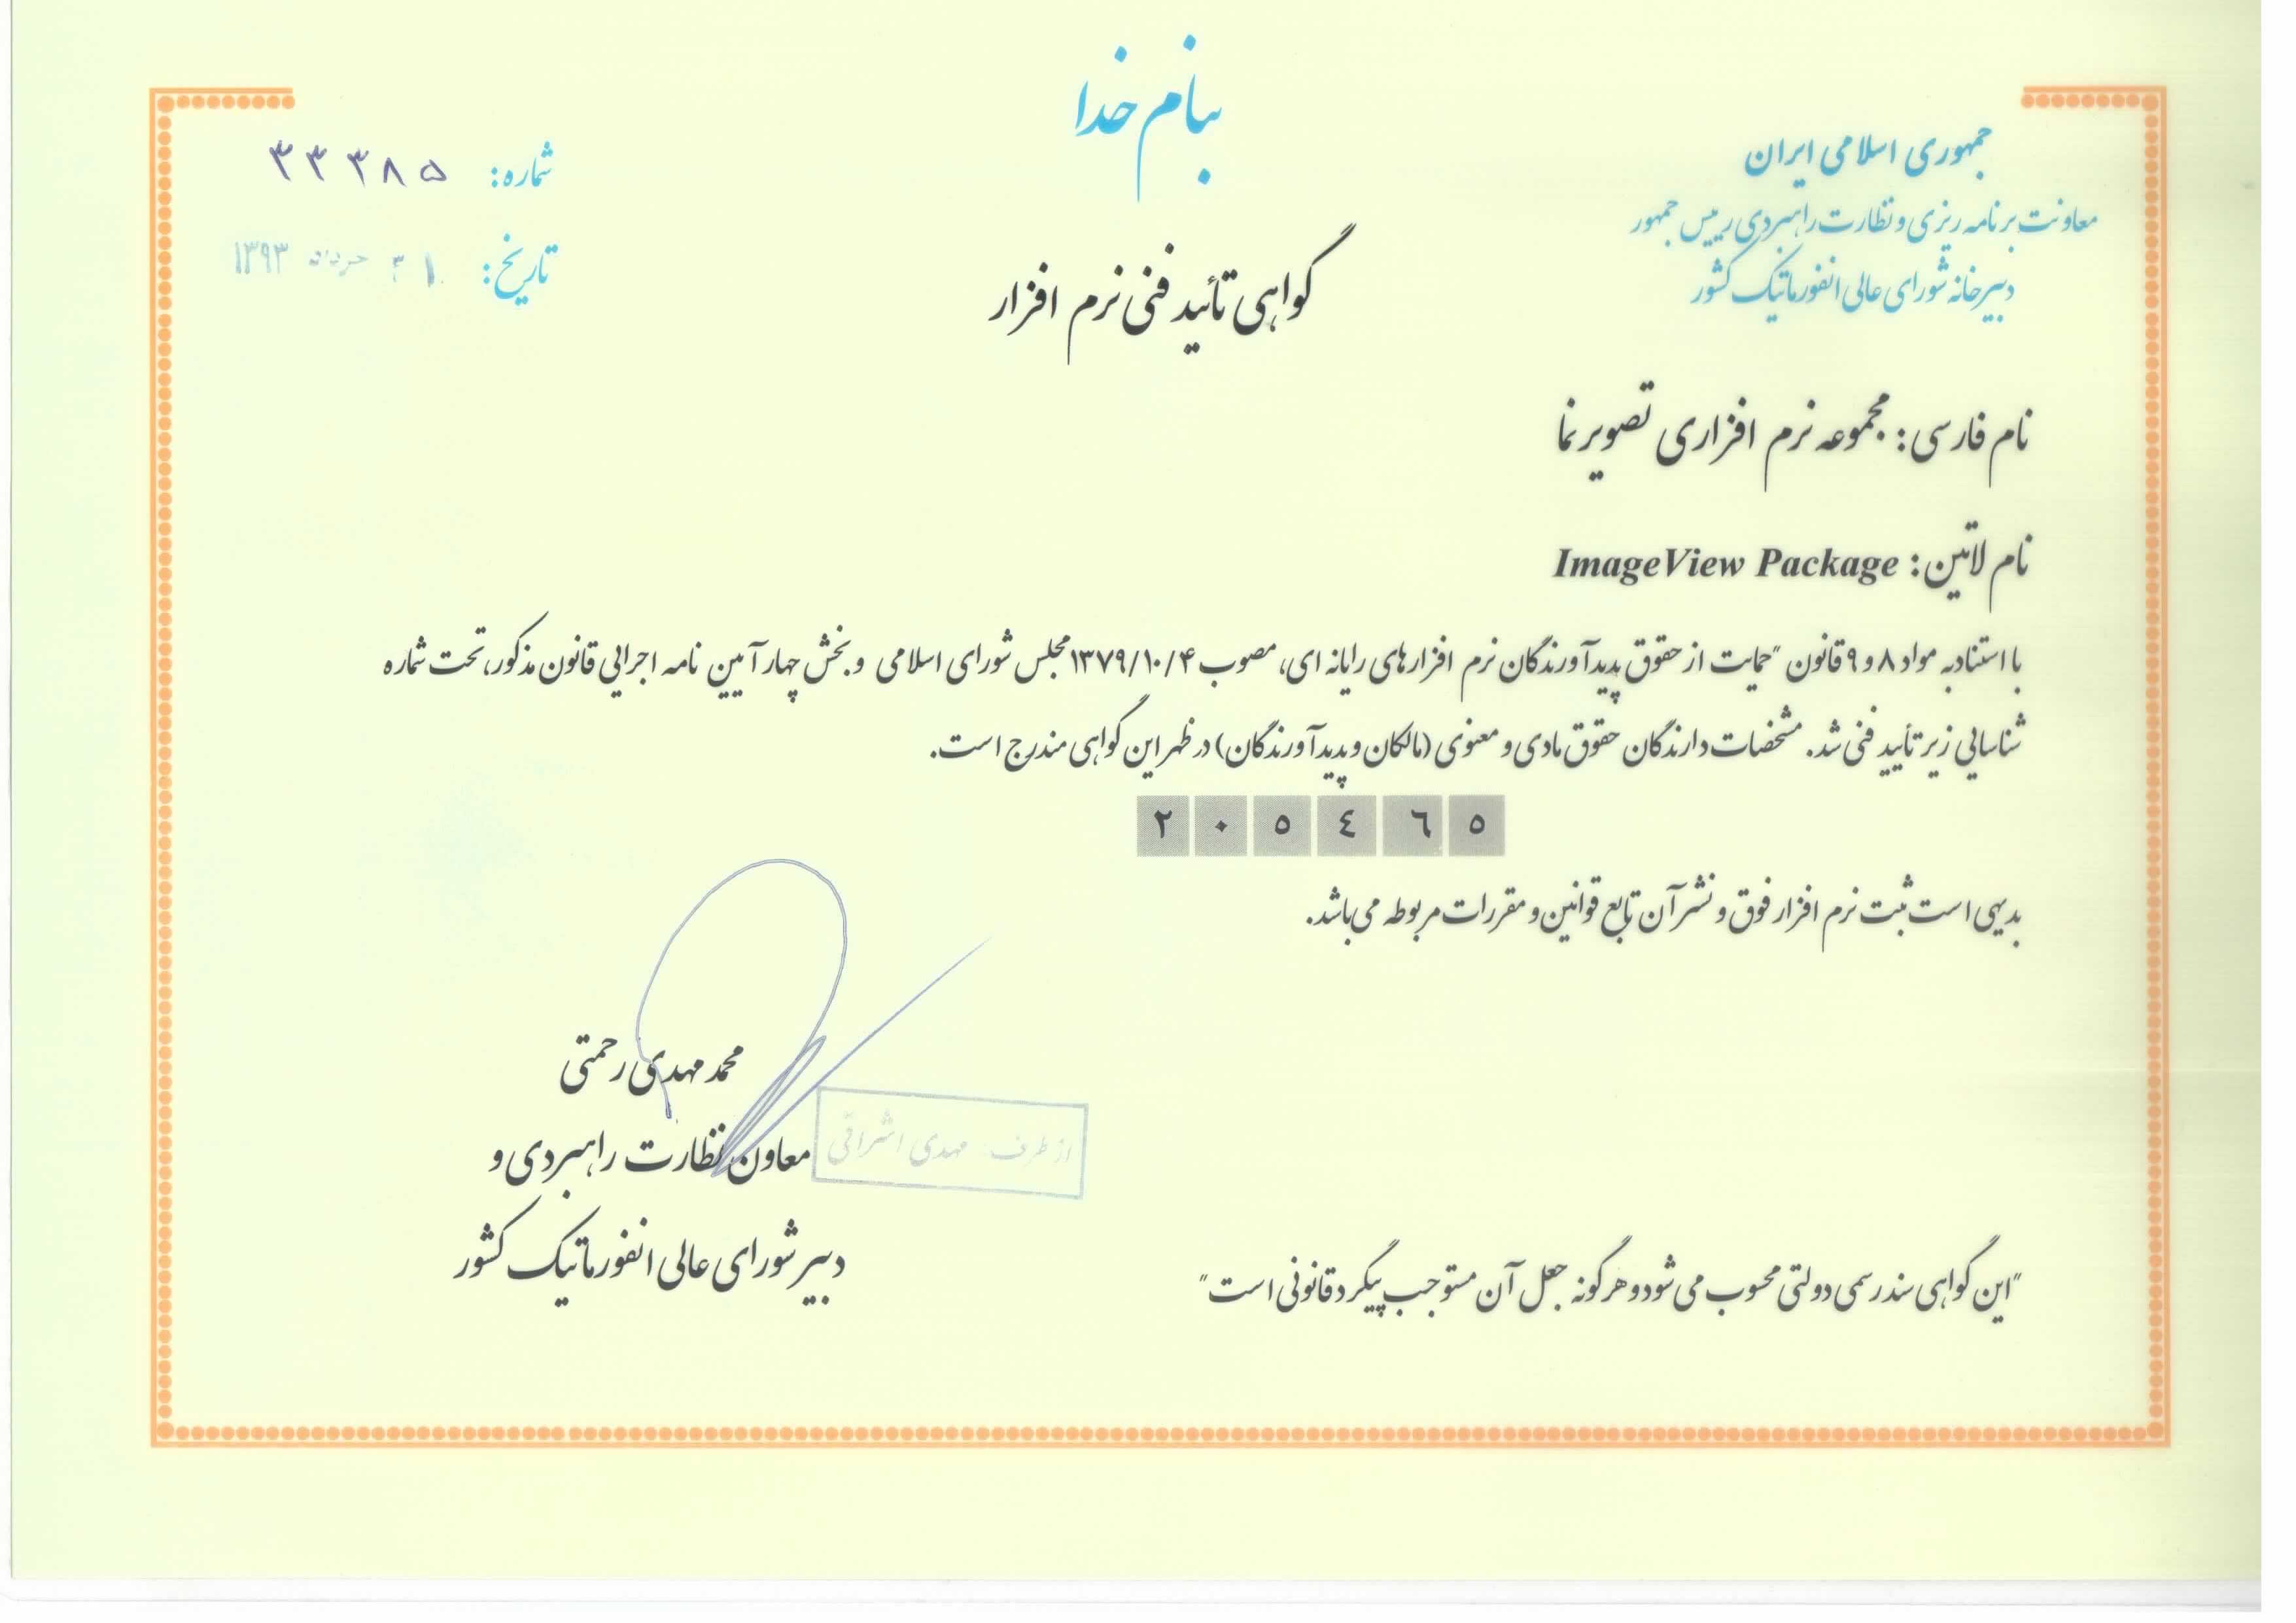 بنام خدا
جمهوری اسلامی ایران
معاونت برنامه ریزی و نظارت راهبردی رییس جمهور
دبیرخانه شورای عالی انفورماتیک کشور
شماره: ۳۳۳۸۵
تاریخ: ۳۱ خرداد ۱۳۹۳
گواهی تأئید فنی نرم افزار
نام فارسی: مجموعه نرم افزاری تصویرنما
نام لاتین: ImageView Package
با استناد به مواد ۸ و ۹ قانون "حمایت از حقوق پدیدآورندگان نرم افزارهای رایانه ای، مصوب ۱۳۷۹/۱۰/۴ مجلس شورای اسلامی و بخش چهار آیین نامه اجرایی قانون مذکور، تحت شماره
شناسایی زیر تأیید فنی شد. مشخصات دارندگان حقوق مادی و معنوی (مالکان و پدیدآورندگان) در ظهر این گواهی مندرج است.
۲۰۵٤٦۵
بدیهی است ثبت نرم افزار فوق و نشر آن تابع قوانین و مقررات مربوطه می باشد.
محمد مهدی رحمتی
معاون نظارت راهبردی و
از طرف مهدی اشراقی
دبیر شورای عالی انفورماتیک کشور
"این گواهی سند رسمی دولتی محسوب می شود و هرگونه جعل آن مستوجب پیگرد قانونی است"